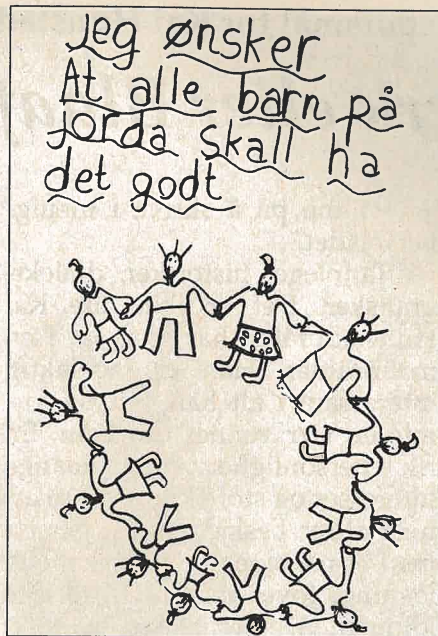 Jeg ønsker
At alle barn på
jorda skall ha
det godt